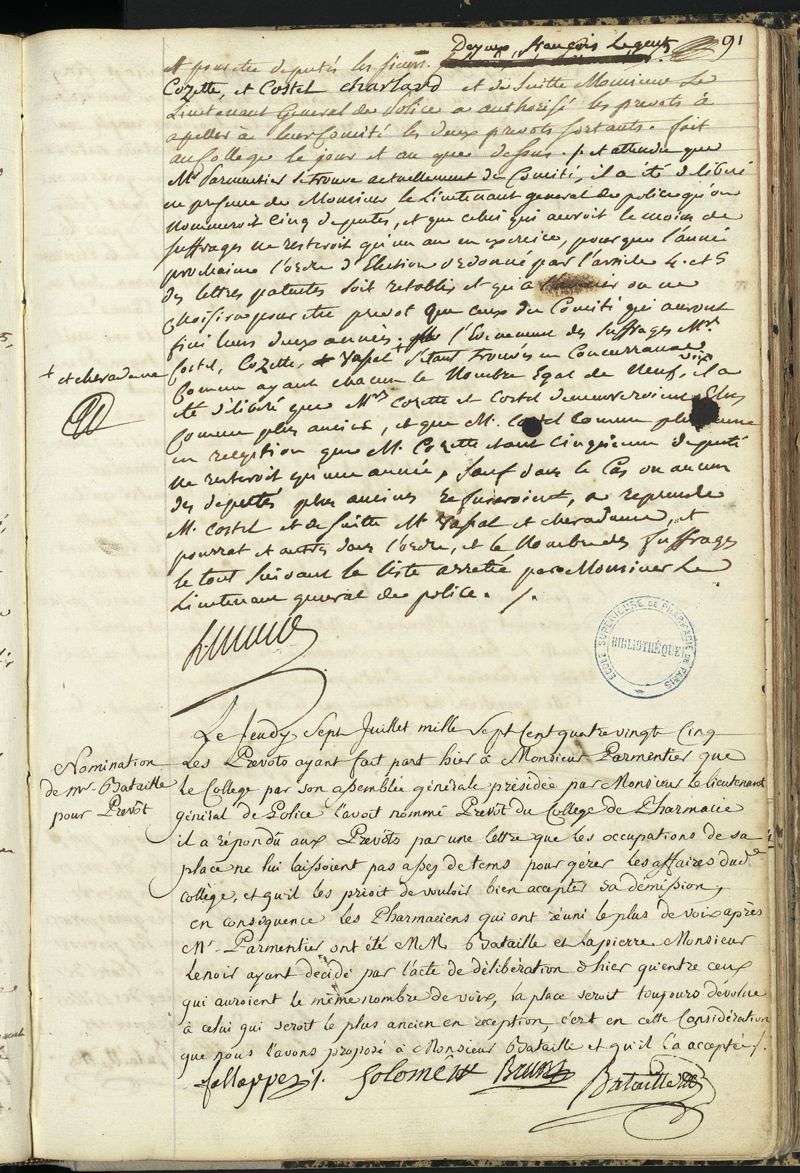 91
et pour être deputés les sieurs Deyeux, françois Legent
Cozette, et Costel charlard et de suitte Monsieur Le
Lieutenant General de police a authorisé les prevots à
apeller à leur Comité les deux prevots sortants. fait
au College le jour et an que dessus. et attendu que
Mr Parmentier se trouve actuellement du Comité, il a été deliberé
en presence de Monsieur le Lieutenant general de police qu'on
nommeroit Cinq deputés, et que celui qui auroit le moins de
suffrages ne resteroit qu'un an en exercice, pour que l'année
prochaine l'ordre d'Election ordonné par l'article 4. et 5
des lettres patentes soit retablis et qu'à ou ne
choisira pour être prevot que ceux du Comité qui auront
fini leurs deux années. l'Evenement des suffrages Mrs
Costel, Cozette, Vassal + s'étant trouvés en Concurrance
+ et cheradame
Comme ayant chacun le Nombre Egal de Neuf voix, il a
été deliberé que Mrs Cozette et Costel demeureroient Elus
Comme plus anciens, et que M. Costel Comme plus
en reception que M. Cozette etant Cinquieme deputé
ne resteroit qu'une année, sauf dans le Cas ou aucun
des deputés plus anciens refuseroient, a reprendre
M. Costel et de suitte Mr Vassal et cheradame, et
pourrat et autres dans l'ordre, et le Nombre des suffrages
le tout suivant la liste arretée par Monsieur Le
Lieutenant general de police. /.
ÉCOLE SUPÉRIEURE DE PHARMACIE DE PARIS
BIBLIOTHÈQUE
Nomination
de Mr. Bataille
pour Prevôt
Le Jeudy Sept Juillet mille Sept Cent quatre vingt Cinq
Les Prevots ayant fait part hier à Monsieur Parmentier que
le College par son assemblée générale présidée par Monsieur le lieutenant
général de Police l'avoit nommé Prevôt du College de Pharmacie
il a répondu aux Prevôts par une lettre que les occupations de sa
place ne lui laissoient pas assez de tems pour gérer les affaires dud.
collège, et qu'il les prioit de vouloir bien accepter sa démission,
en conséquence les Pharmaciens qui ont réuni le plus de voix après
Mr. Parmentier ont été MM Bataille et Lapierre. Monsieur
Lenoir ayant décidé par l'acte de délibération d'hier qu'entre ceux
qui auroient le même nombre de voix, la place seroit toujours dévolue
à celui qui seroit le plus ancien en reception, c'est en cette Considération
que nous l'avons proposé à Monsieur Bataille et qu'il l'a acceptée /.
Solomé Brun Bataille